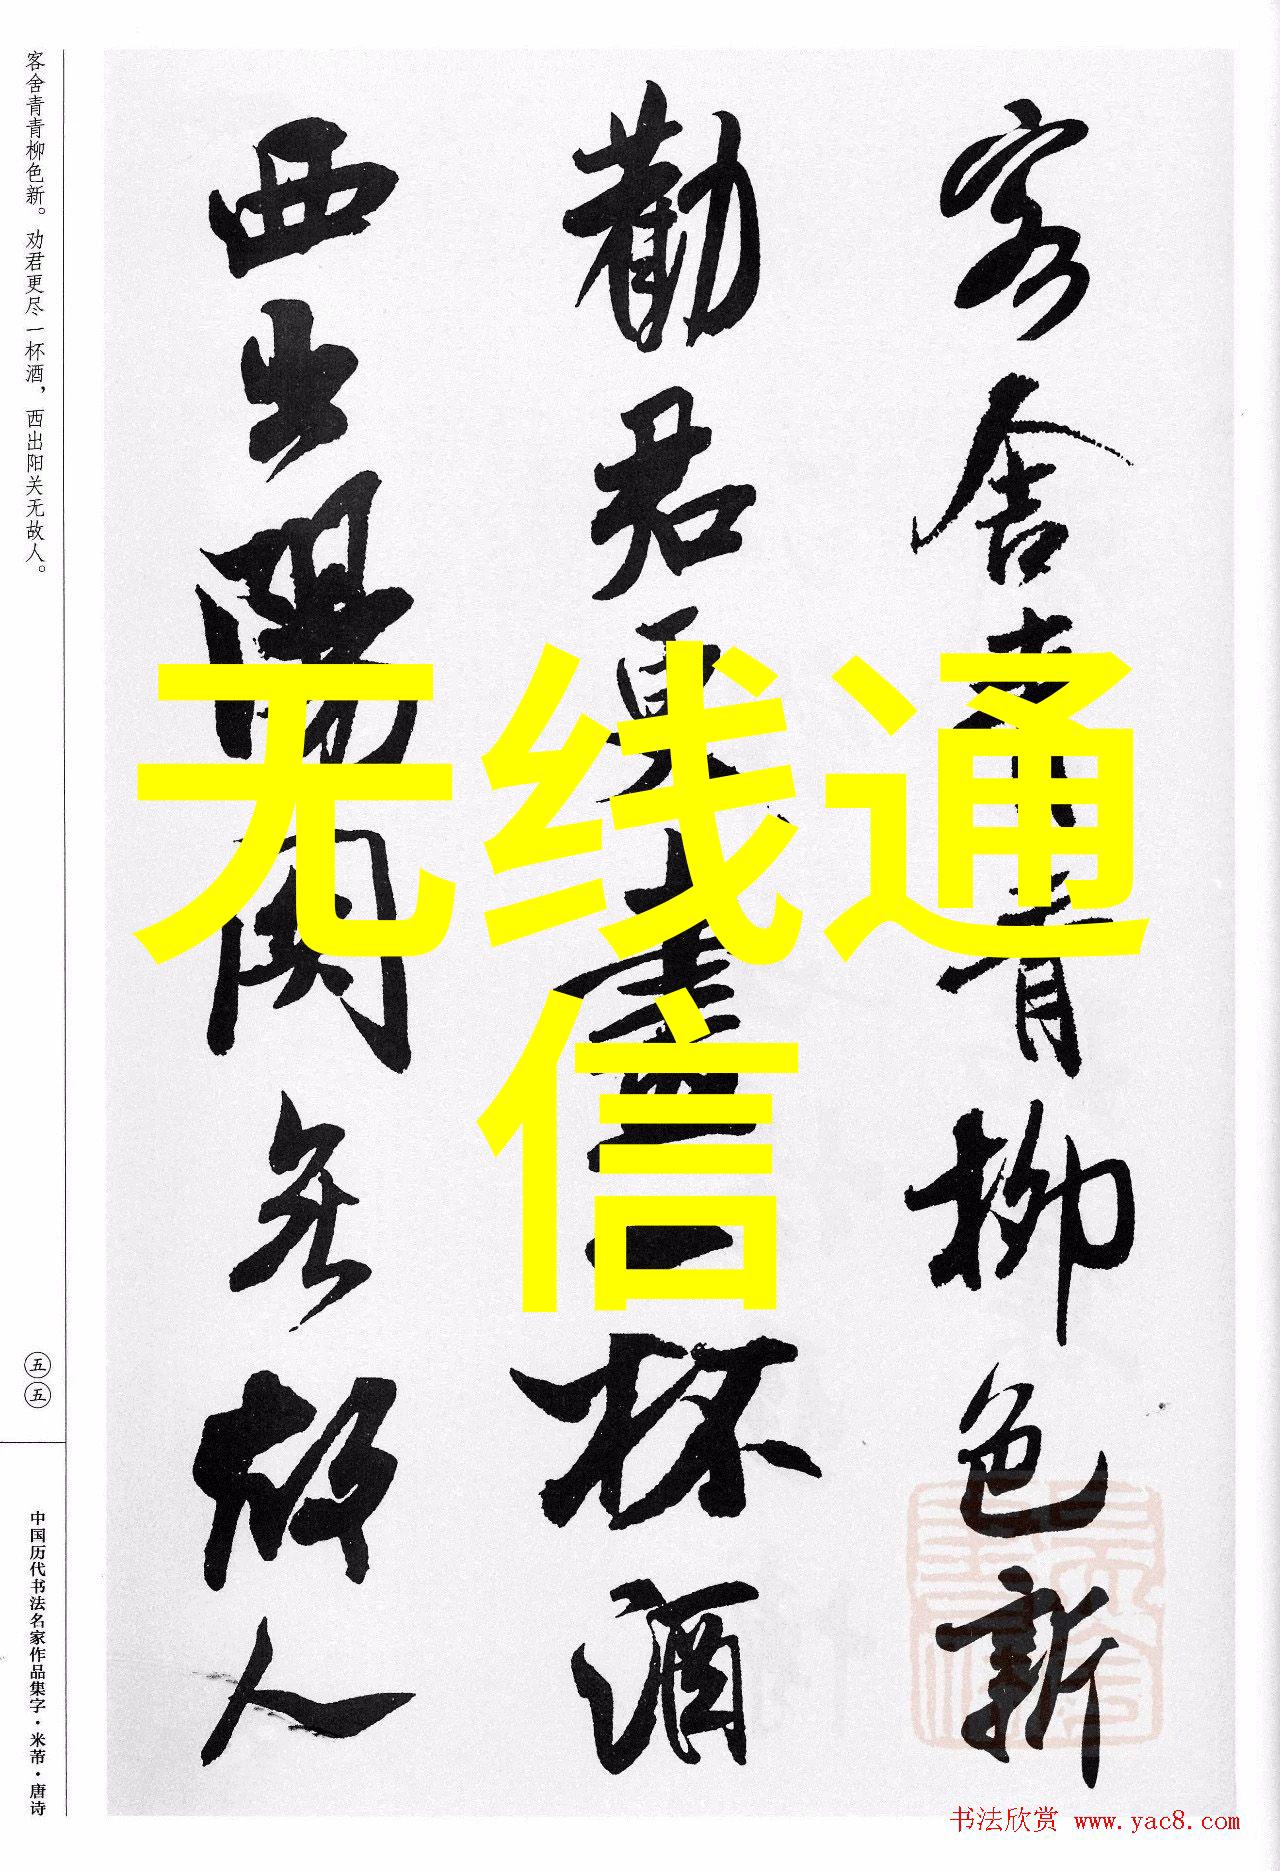 客舍青青柳色新
勸君更盡一杯酒
西出陽關無故人
无线通
信
客舍青青柳色新。劝君更尽一杯酒，西出阳关无故人。
五五
中国历代书法名家作品集字·米芾·唐诗
书法欣赏 www.yac8.com